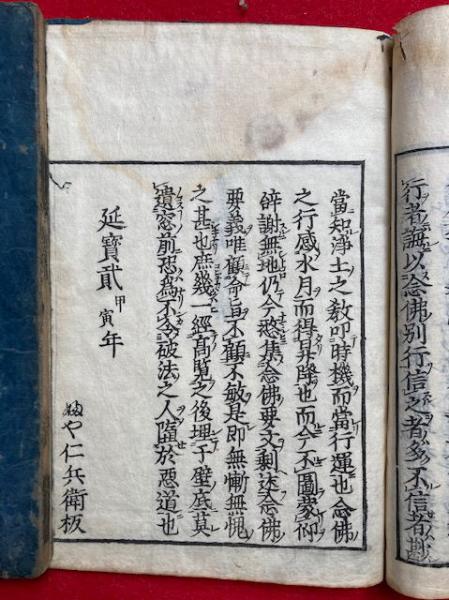 行者誨以念佛別行信之者多不信者尠
當知淨土之教叩時機而當行運也念佛
之行感水月而得昇降也而今不圖蒙仰
辞謝無地仍今憗集念佛要文剩述念佛
要義唯顧命旨不顧不敏是即無慚無愧
之甚也庶幾一經高覧之後埋于壁底莫
遺窓前恐爲不令破法之人墮於惡道也
延寶貳甲寅年
や仁兵衛板